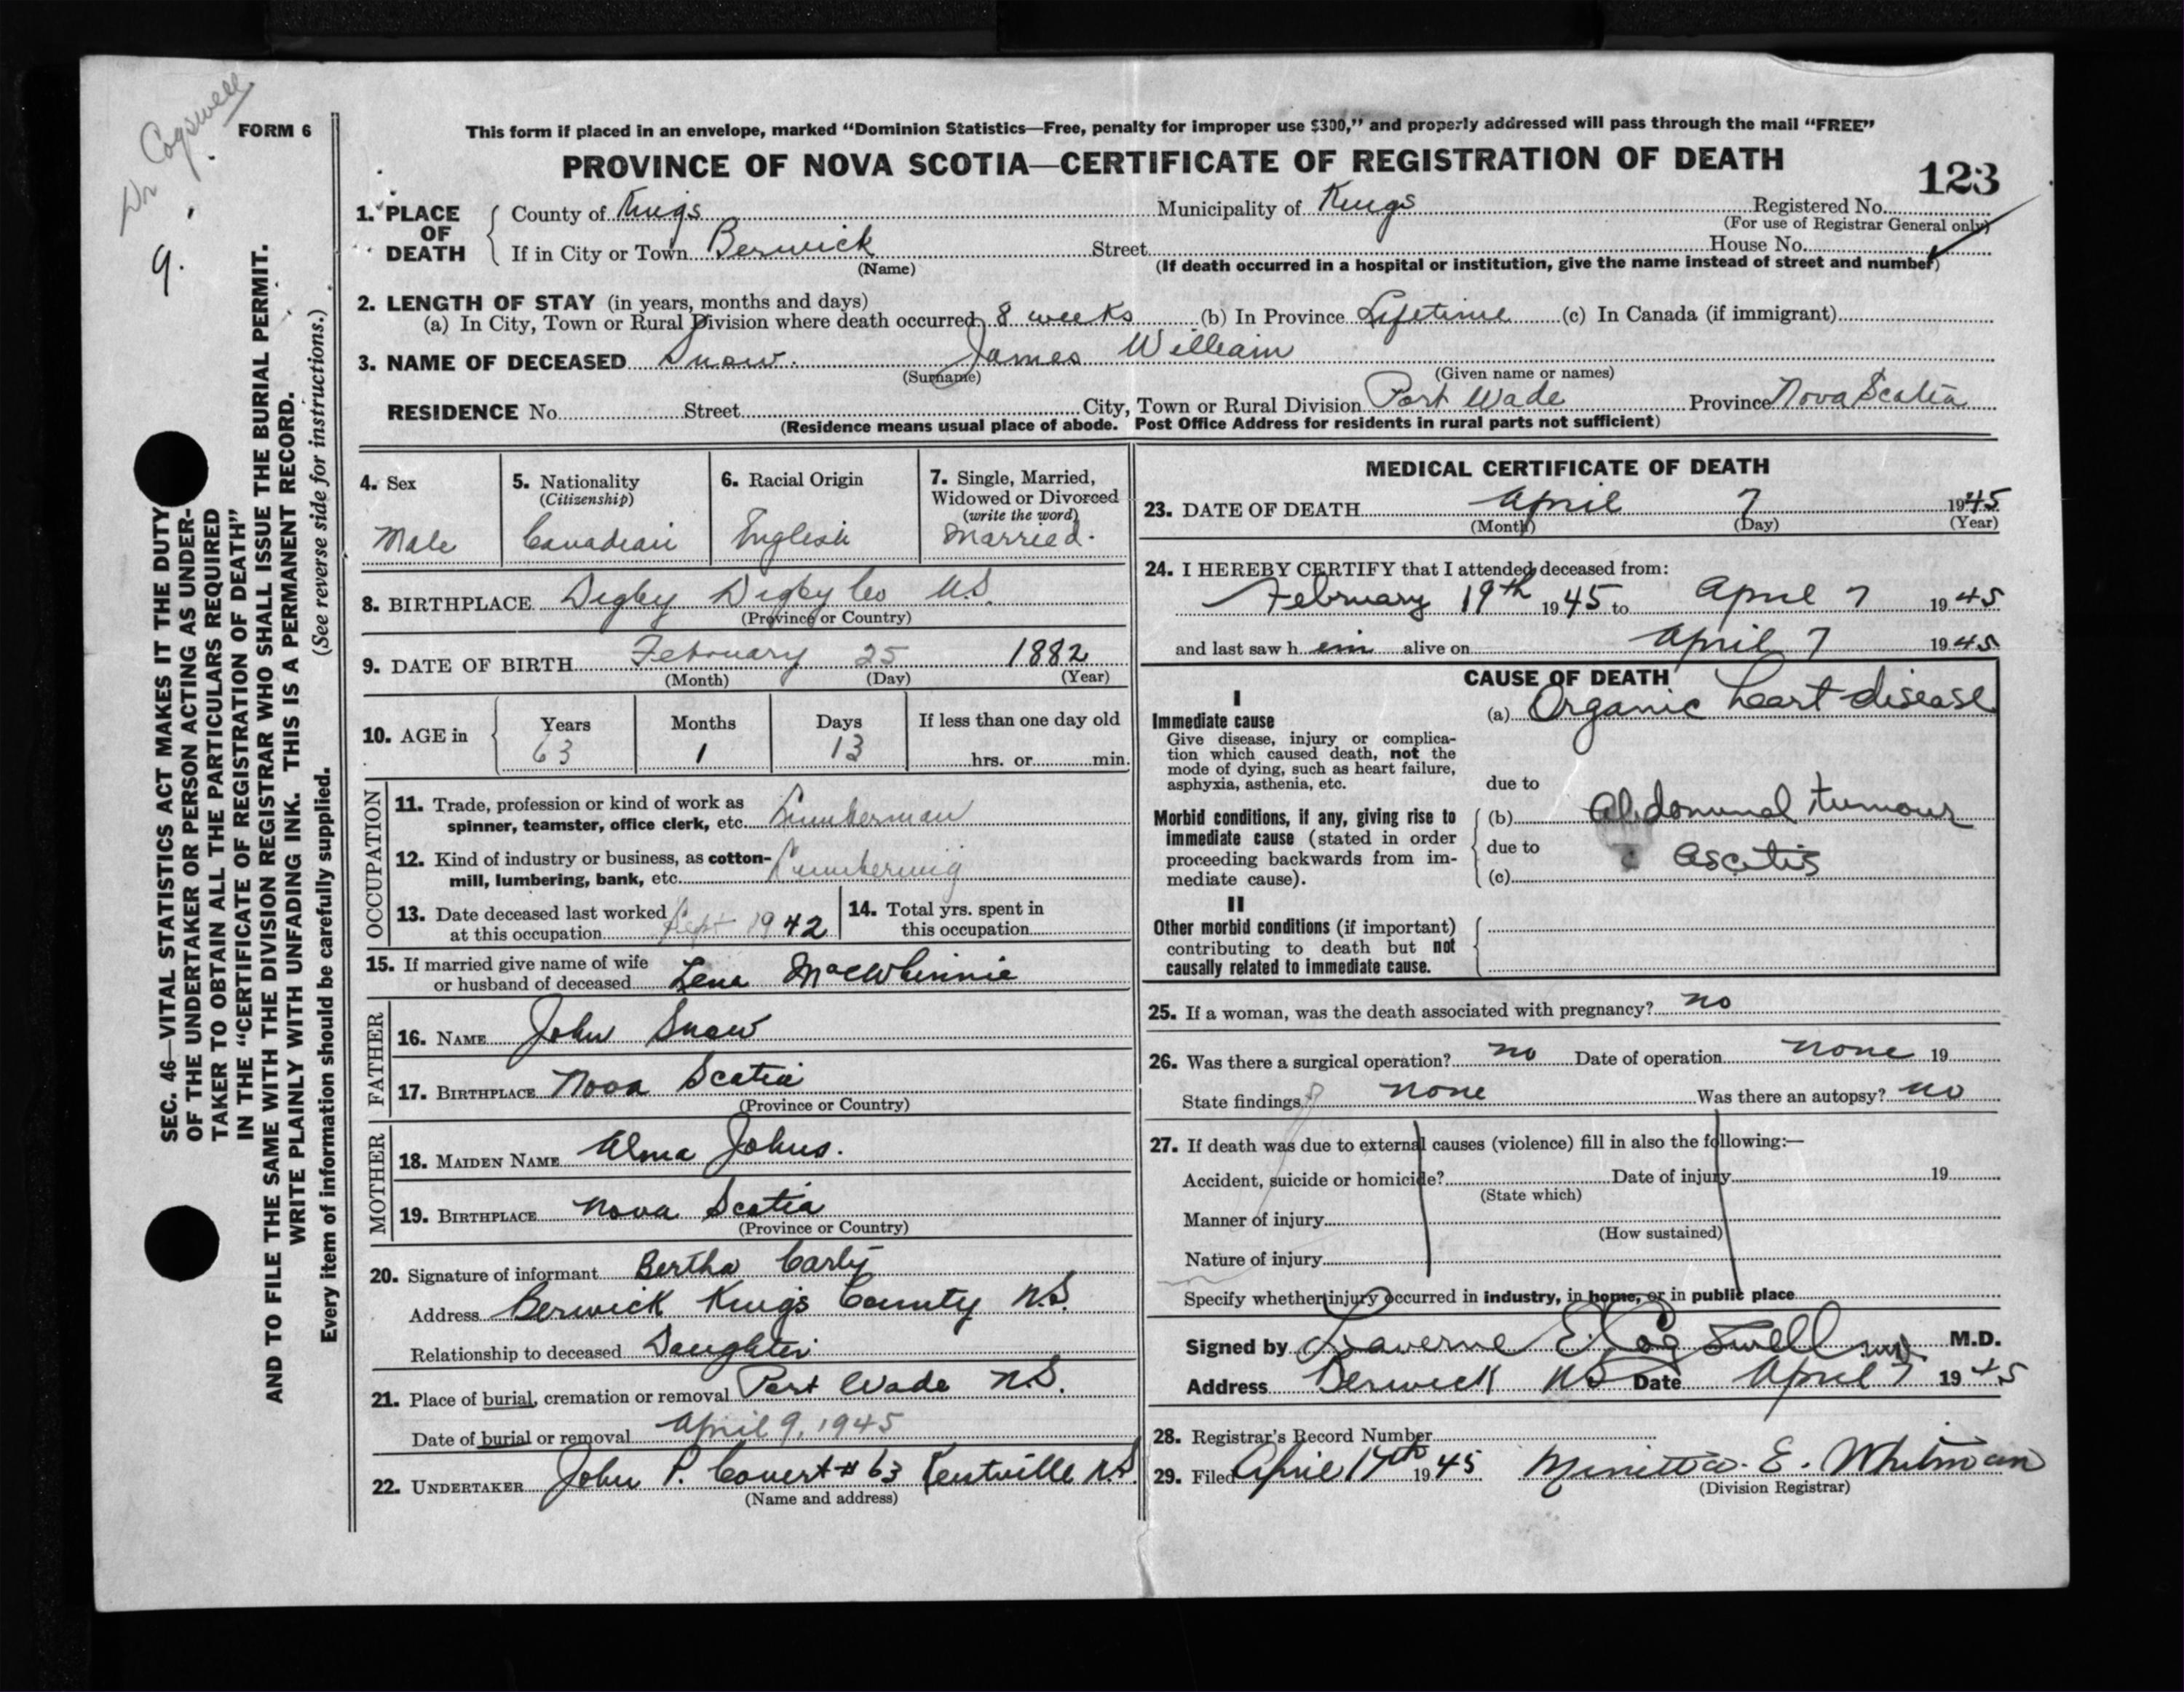 Dr Cogswell
9.
FORM 6
SEC. 46—VITAL STATISTICS ACT MAKES IT THE DUTY
OF THE UNDERTAKER OR PERSON ACTING AS UNDER-
TAKER TO OBTAIN ALL THE PARTICULARS REQUIRED
IN THE "CERTIFICATE OF REGISTRATION OF DEATH"
AND TO FILE THE SAME WITH THE DIVISION REGISTRAR WHO SHALL ISSUE THE BURIAL PERMIT.
WRITE PLAINLY WITH UNFADING INK. THIS IS A PERMANENT RECORD.
Every item of information should be carefully supplied. (See reverse side for instructions.)
This form if placed in an envelope, marked "Dominion Statistics—Free, penalty for improper use $300," and properly addressed will pass through the mail "FREE"
PROVINCE OF NOVA SCOTIA—CERTIFICATE OF REGISTRATION OF DEATH
123
1. PLACE OF DEATH County of Kings Municipality of Kings Registered No.
(For use of Registrar General only)
If in City or Town Berwick Street House No.
(Name) (If death occurred in a hospital or institution, give the name instead of street and number)
2. LENGTH OF STAY (in years, months and days)
(a) In City, Town or Rural Division where death occurred 8 weeks (b) In Province Lifetime (c) In Canada (if immigrant)
3. NAME OF DECEASED Snow. James William
(Surname) (Given name or names)
RESIDENCE No. Street City, Town or Rural Division Port Wade Province Nova Scotia
(Residence means usual place of abode. Post Office Address for residents in rural parts not sufficient)
4. Sex 5. Nationality 6. Racial Origin 7. Single, Married,
(Citizenship) Widowed or Divorced
(write the word)
Male Canadian English Married.
8. BIRTHPLACE Digby Digby Co N.S.
(Province or Country)
9. DATE OF BIRTH February 25 1882
(Month) (Day) (Year)
10. AGE in Years Months Days If less than one day old
63 1 13 hrs. or min.
OCCUPATION
11. Trade, profession or kind of work as
spinner, teamster, office clerk, etc. Lumberman
12. Kind of industry or business, as cotton-
mill, lumbering, bank, etc. Lumbering
13. Date deceased last worked
at this occupation Sept 1942
14. Total yrs. spent in
this occupation
15. If married give name of wife
or husband of deceased Lena MacWhinnie
FATHER
16. NAME John Snow
17. BIRTHPLACE Nova Scotia
(Province or Country)
MOTHER
18. MAIDEN NAME Alma Johns.
19. BIRTHPLACE Nova Scotia
(Province or Country)
20. Signature of informant Bertha Carty
Address Berwick King's County N.S.
Relationship to deceased Daughter
21. Place of burial, cremation or removal Port Wade N.S.
Date of burial or removal April 9, 1945
22. UNDERTAKER John P. Covert # 63 Kentville N.S.
(Name and address)
MEDICAL CERTIFICATE OF DEATH
23. DATE OF DEATH April 7 1945
(Month) (Day) (Year)
24. I HEREBY CERTIFY that I attended deceased from:
February 19th 1945 to April 7 1945
and last saw h im alive on April 7 1945
CAUSE OF DEATH
I
Immediate cause
Give disease, injury or complica-
tion which caused death, not the
mode of dying, such as heart failure,
asphyxia, asthenia, etc.
(a) Organic heart disease
due to
Morbid conditions, if any, giving rise to
immediate cause (stated in order
proceeding backwards from im-
mediate cause).
(b) Abdominal tumour
due to c ascitis
(c)
II
Other morbid conditions (if important)
contributing to death but not
causally related to immediate cause.
25. If a woman, was the death associated with pregnancy? no
26. Was there a surgical operation? no Date of operation none 19
State findings none Was there an autopsy? no
27. If death was due to external causes (violence) fill in also the following:—
Accident, suicide or homicide? Date of injury 19
(State which)
Manner of injury
(How sustained)
Nature of injury
Specify whether injury occurred in industry, in home, or in public place
Signed by Laverne E. Cogswell M.D.
Address Berwick NS Date April 7 1945
28. Registrar's Record Number
29. Filed April 17th 1945 E. Whitman
(Division Registrar)